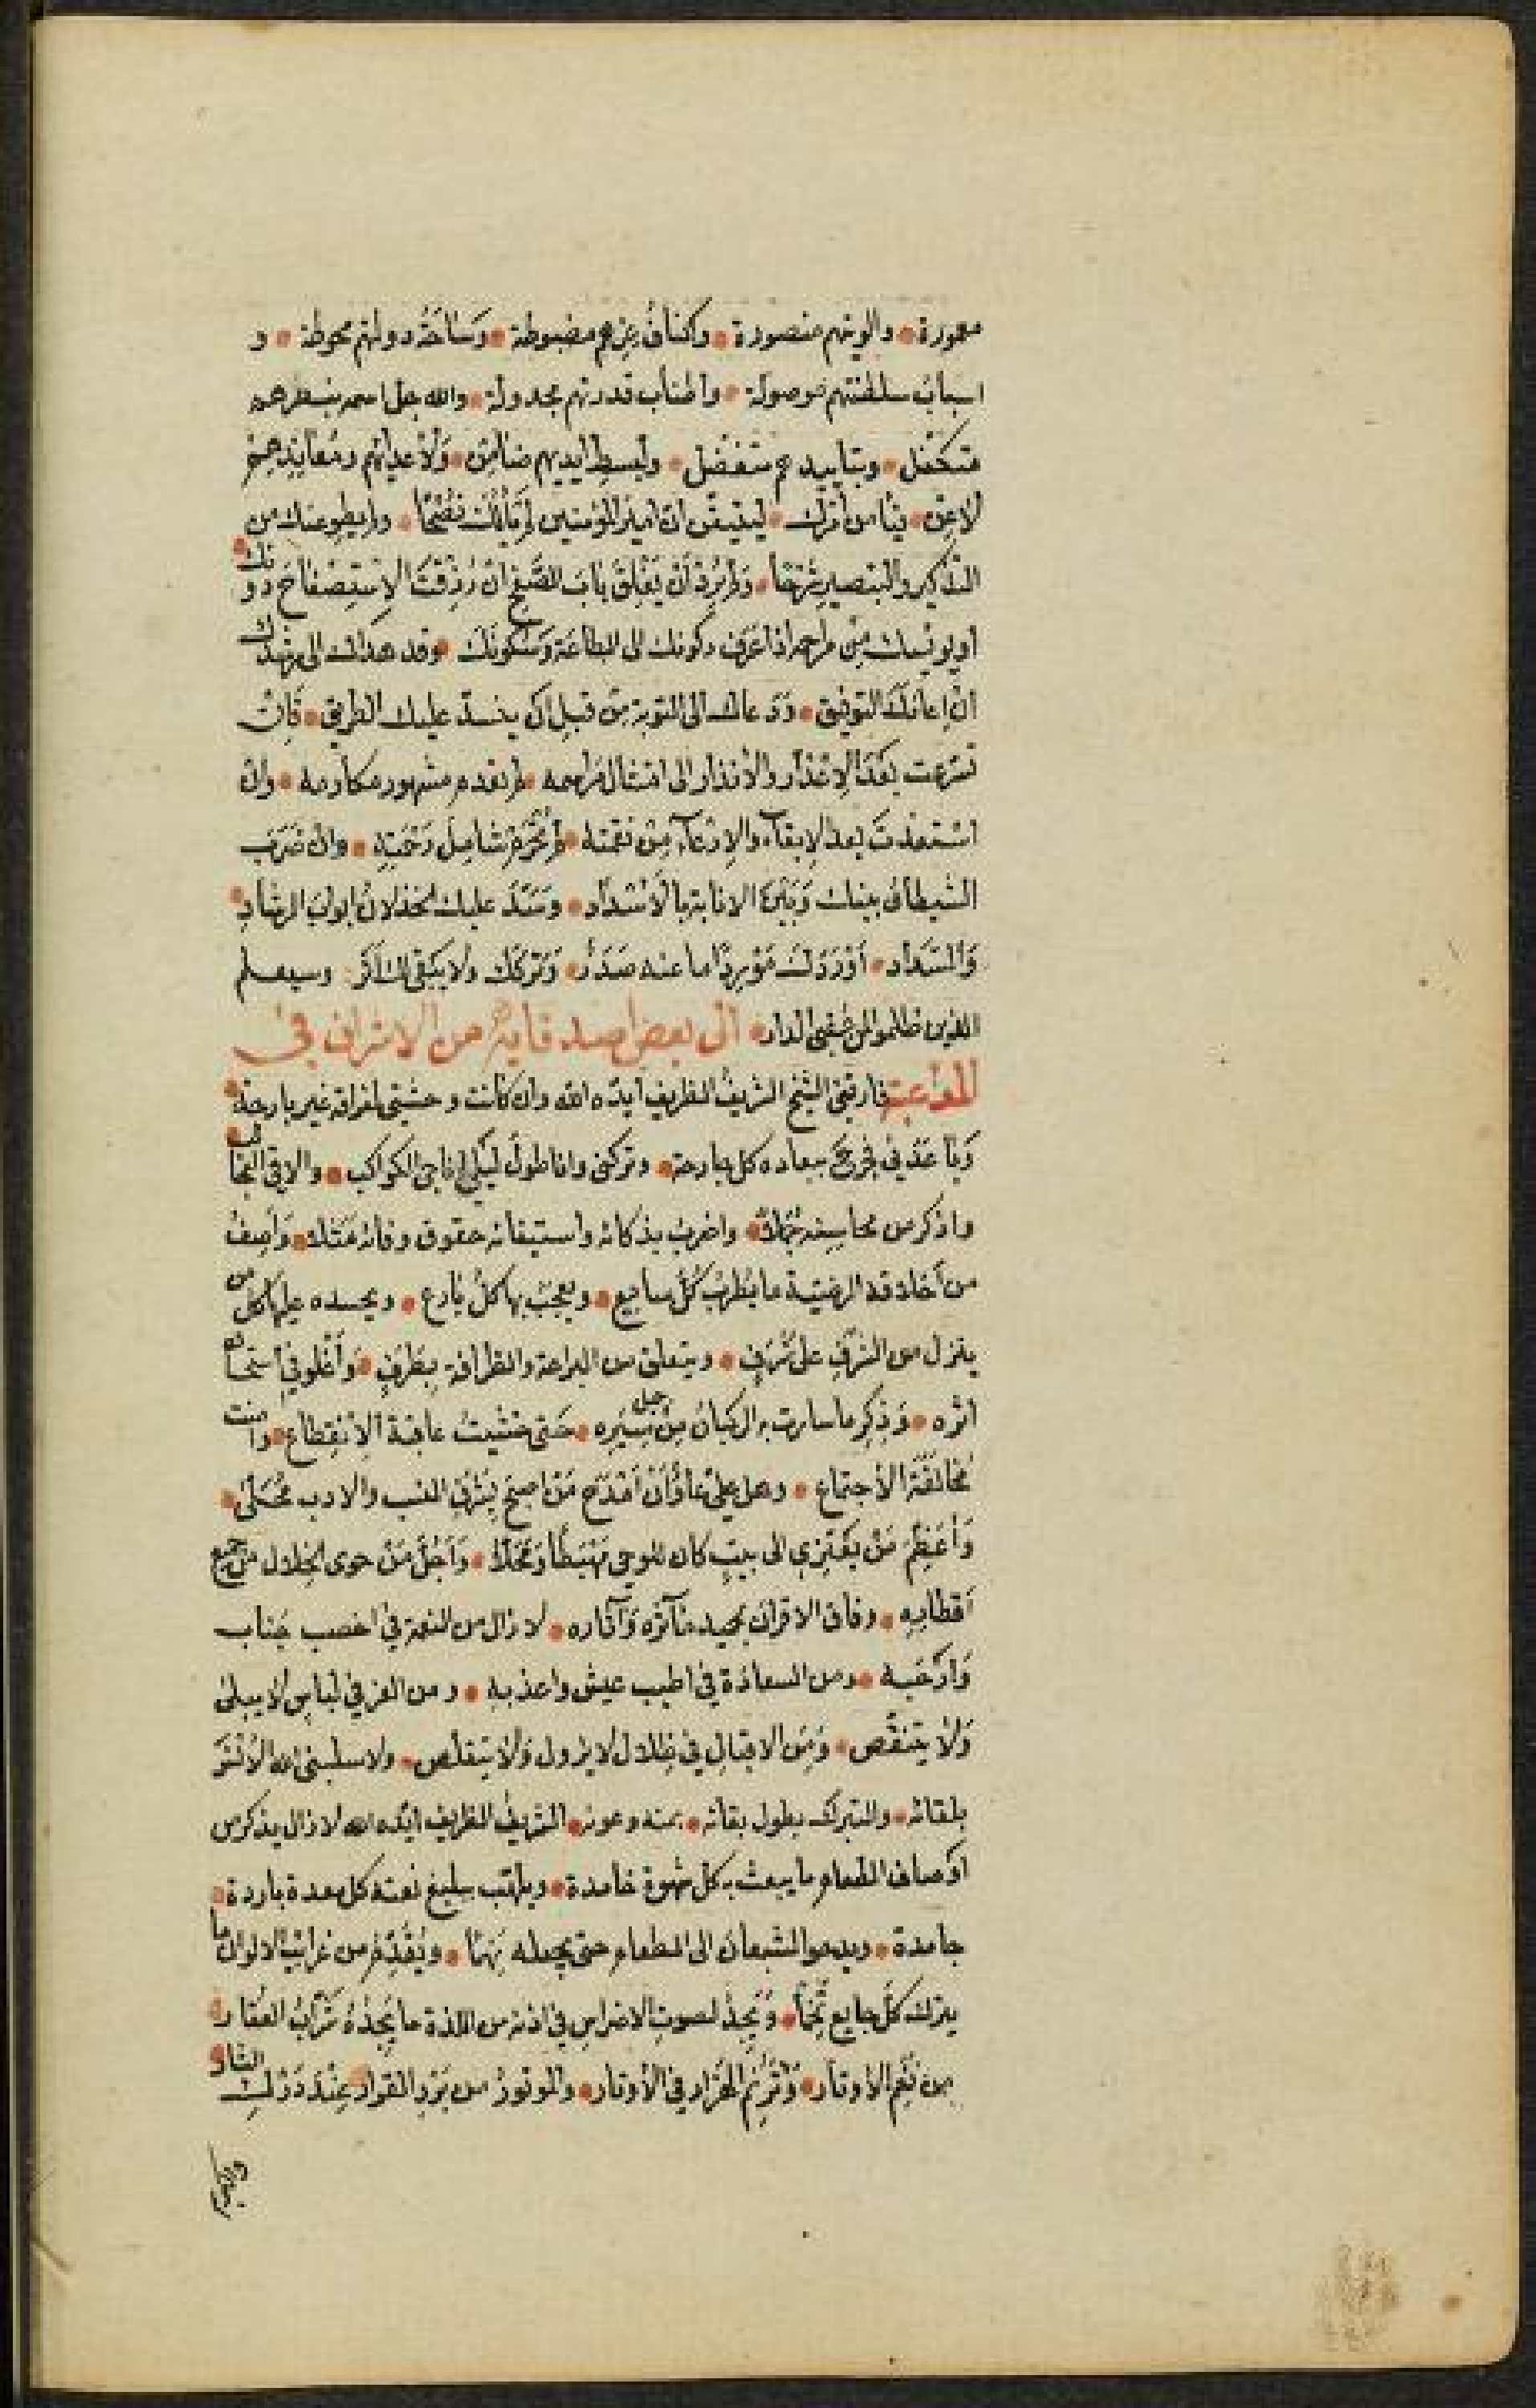 معمورة • والويتهم منصورة • واكناف عزهم مضبوطة • وساحة دولتهم محوطة • و
اسباب سلطنتهم موصولة • واطناب قدرتهم مجدولة • والله جل اسمه بنصرهم
متكفل • وبتاييدهم متفضل • ولبسط ايديهم ضامن • ولاعدائهم ومعانديهم
لاعن • ليتيقن ان امير المؤمنين لم يألك نصحا • ولم يطو عنك من
التذكير والتبصير شرحا • ولم يرد ان يغلق باب الصفح ان رزقت الاستصفاح دونك •
او يونسك من مراحمه اذا عرف ركونك الى الطاعة وسكونك • وقد هداك الى رشدك
ان اعانك التوفيق • ودعاك الى التوبة من قبل ان ينسد عليك الطريق • فان
تسرعت بعد الاعذار والانذار الى امتثال مراسمه • لم تعدم مشهور مكارمه • وان
استعذت بعد الابقاء والارعاء من نقمته • لم تحرم شامل رحمته • وان ضرب
الشيطان بينك وبين الانابة بالاسداد • وسد عليك الخذلان ابواب الرشاد •
والسداد • اوردك موردا ما عنه صدر • وتركك ولا يبقي لك ولا يذر • وسيعلم
الذين ظلموا لمن عقبى الدار • الى بعض اصدقايه من الاشراف في
المداعبة فارقني الشيخ الشريف الظريف ايده الله وان كانت وحشتي لفراقه غير بارحة •
وباعدني فجرح ببعاده كل جارحة • وتركني وانا طول ليلي اناجي الكواكب • والاقي النجائب •
واذكر من محاسنه جملا • واضرب بذكائه واستيفائه حقوق وفائه مثلا • واصف
من اخلاقه الرضية ما يطرب كل سامع • ويعجب بها كل بارع • ويحسده عليها كل من
ينزل من الشرف على شرف • ويتعلق من البراعة والظرافة بطرف • واغلو في استحسان
اثره • وذكر ما سارت به الركبان من جميل سيره • حتى خشيت عاقبة الانقطاع • وامنت
مخالفة الاجتماع • وهل علي عار ان امدح من اصبح بشرف النسب والادب محلى •
واعظم من يعتزي الى بيت كان للوحي مهبطا ومحلا • واجل من حوى الخلال من جميع
اقطابه • وفاق الاقران بحميد مآثره وآثاره • لا زال من النعمة في اخصب جناب
وارحبه • ومن السعادة في اطيب عيش واعذبه • ومن العز في لباس لا يبلى
ولا ينتقص • ومن الاقبال في ظلال لا يزول ولا يتقلص • ولا سلبني الله الانس
بلقائه • والتبرك بطول بقائه • بمنه وعونه • الشريف الظريف ايده الله لا زال يذكر من
اوصاف الطعام ما يبعث به كل شهوة خامدة • ويلهب ببليغ نعته كل معدة باردة •
جامدة • ويدعو الشبعان الى الطعام حتى يجعله نهما • ويقدم من غرائب الالوان ما
يترك كل جايع تخما • ويجد لصوت الاضراس في اذنه من اللذة ما يجده شراب العقار •
من نغم الاوتار • وترنم الهزار في الاوتار • والموتور من برد القرار عند درك الثار •